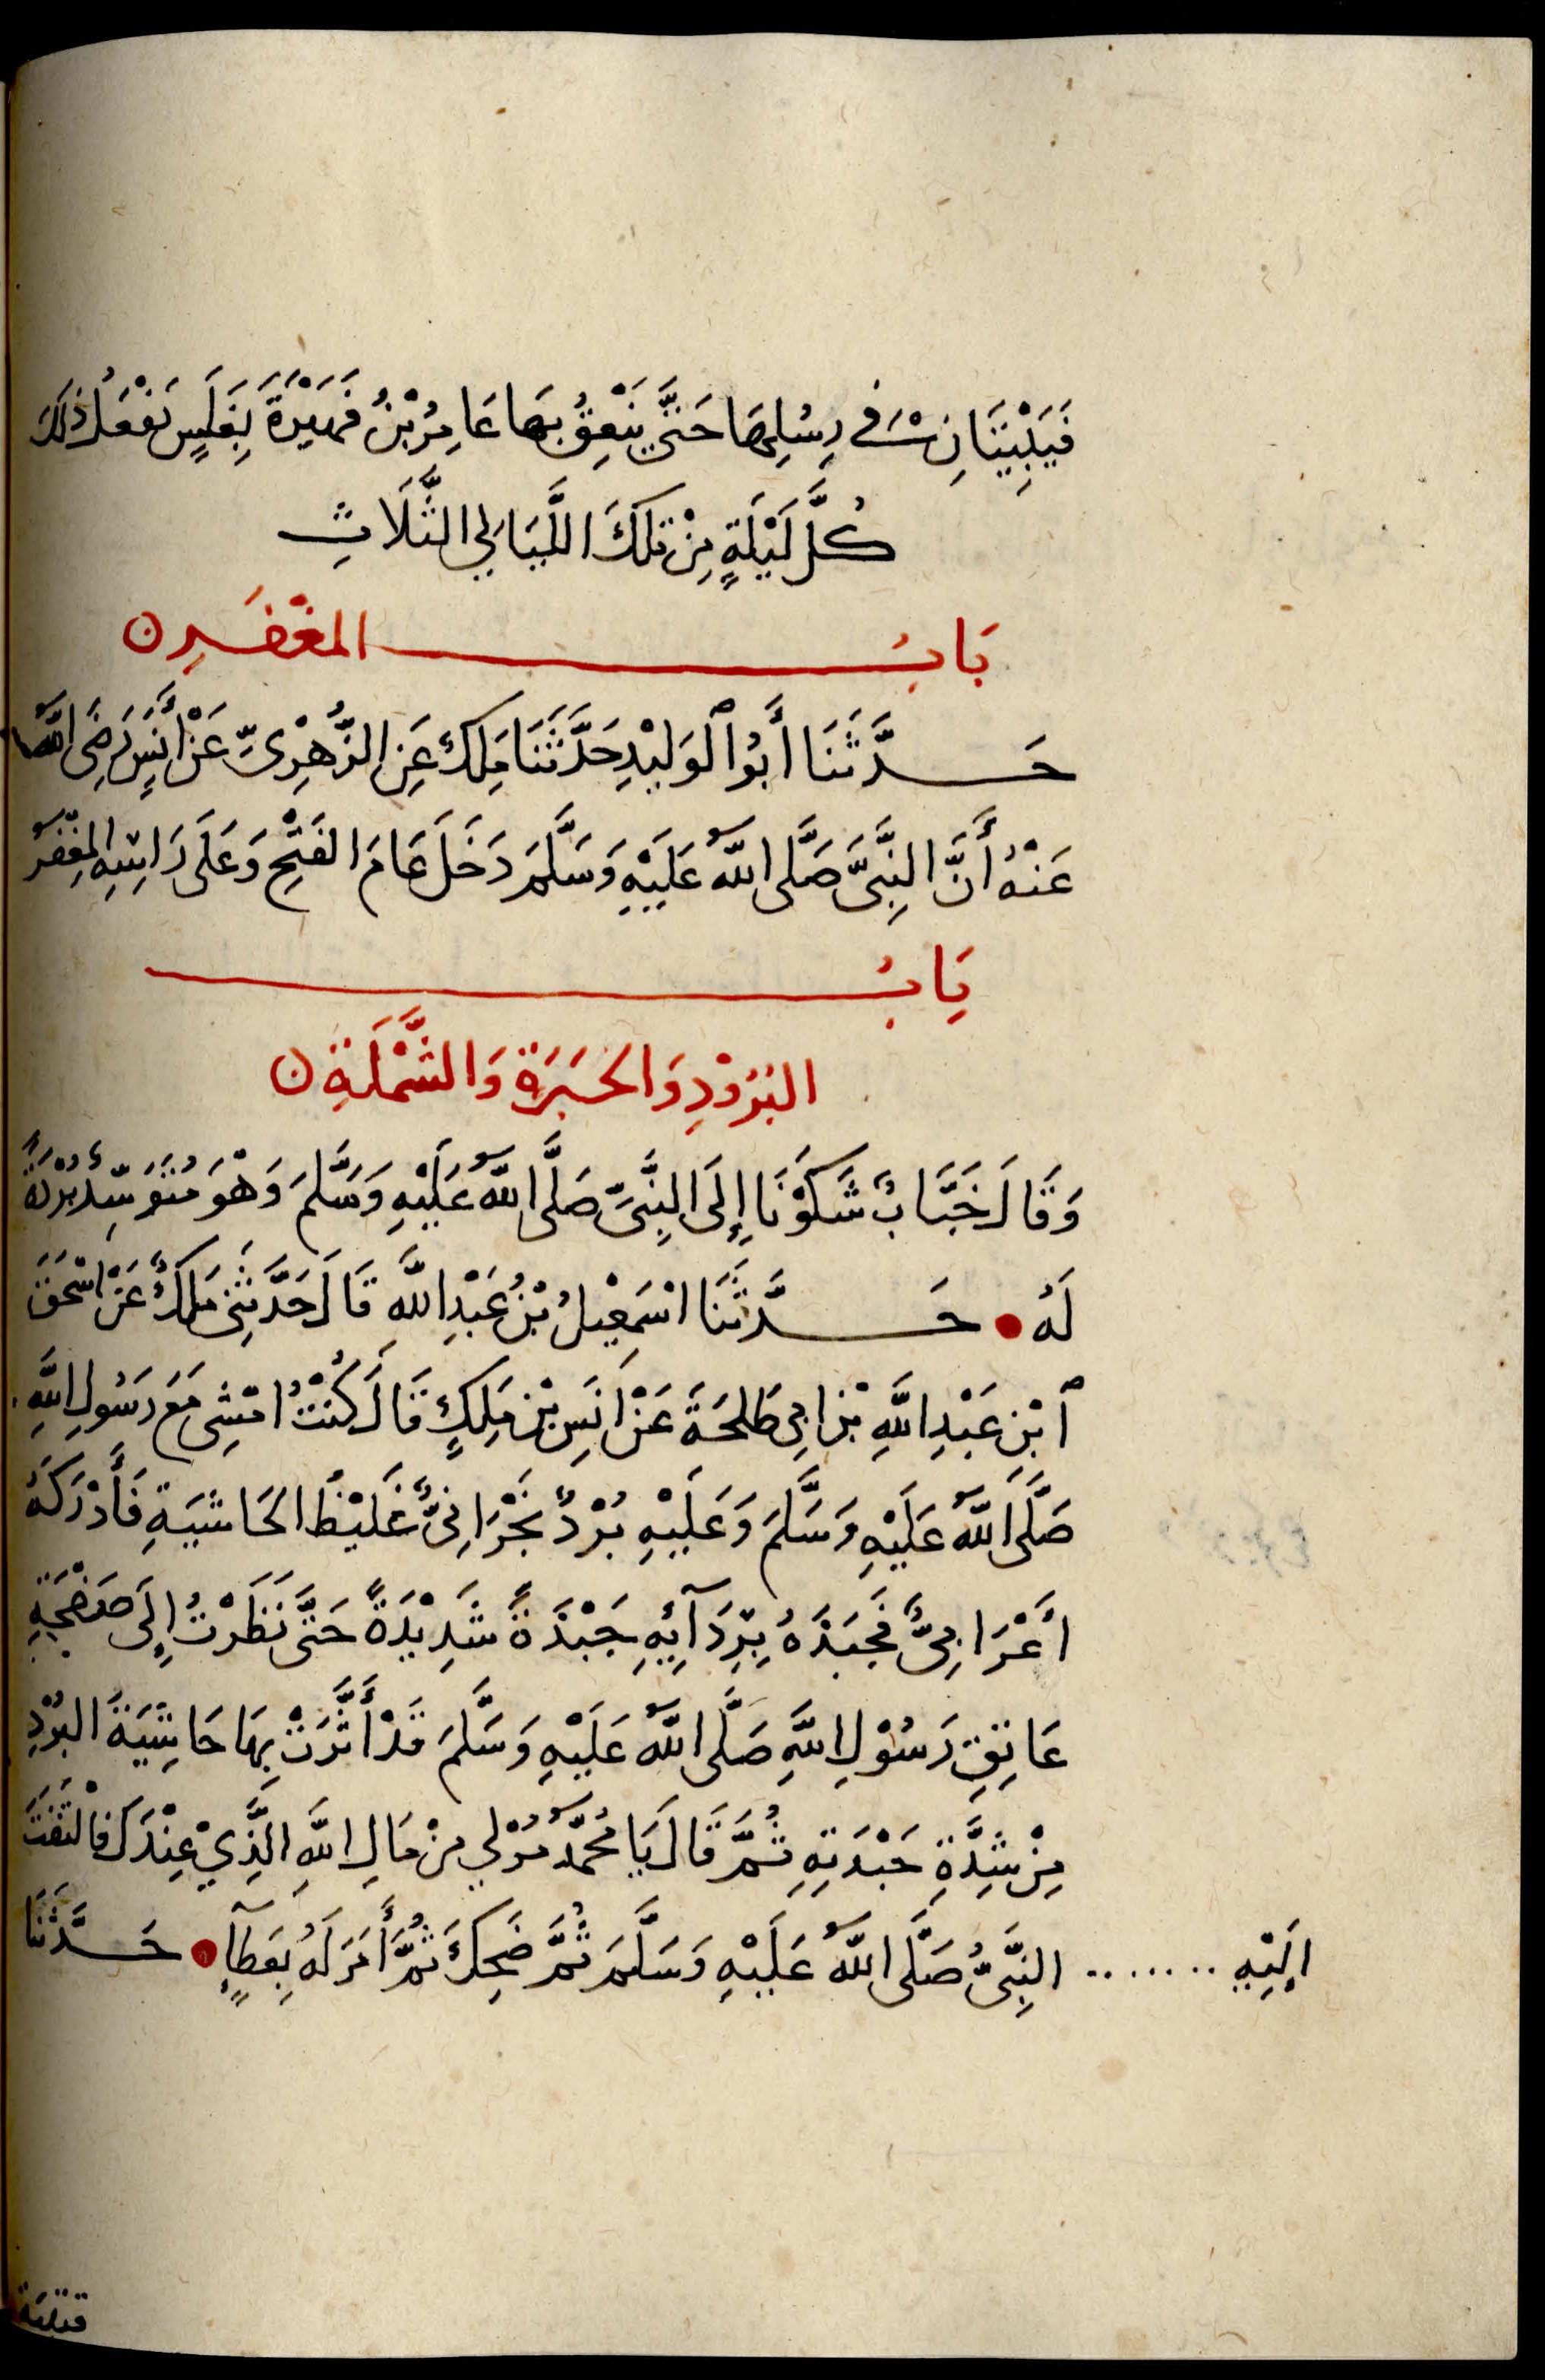 فَيَبِيتَانِ فِي رِسْلِهَا حَتَّى يَنْعِقُ بِهَا عَامِرُ بْنُ فُهَيْرَةَ بِغَلَسٍ يَفْعَلُ ذَلِكَ
كُلَّ لَيْلَةٍ مِنْ تِلْكَ اللَّيَالِي الثَّلَاثِ
بَابُ المغْفَرِ ن
حَدَّثَنَا أَبُو ٱلوَلِيْدِ حَدَّثَنَا مَلِك عَنِ الزُّهْرِىِّ عَنْ أَنَسٍ رَضِىَ اللّٰهُ
عَنْهُ أَنَّ النَّبِىَّ صَلَّى اللّٰهُ عَلَيْهِ وَسَلَّمَ دَخَلَ عَامَ الفَتْحِ وَعَلَى رَاسِهِ المِغْفَرُ
بَابُ
البُرُوْدِ وَالحِبَرَةِ وَالشَّمْلَةِ ن
وَقَالَ خَبَّابٌ شَكَوْنَا إِلَى النَّبِىِّ صَلَّى اللّٰهُ عَلَيْهِ وَسَلَّمَ وَهْوَ مُتَوَسِّدٌ بُرْدَةً
لَهُ • حَدَّثَنَا اسْمَعِيْلُ بْنُ عَبْدِ اللّٰهِ قَالَ حَدَّثَنِى مَلِكٌ عَنْ اسْحَقَ
ٱبْنِ عَبْدِ اللّٰهِ بْنِ ابِى طَلحَةَ عَنْ انَسِ بْنِ مَلِكٍ قَالَ كُنْتُ امْشِى مَعَ رَسُولِ اللّٰهِ
صَلَّى اللّٰهُ عَلَيْهِ وَسَلَّمَ وَعَلَيْهِ بُرْدٌ نَجْرَانِىٌّ غَلِيْظُ الحَاشِيَةِ فَأَدْرَكَهُ
اعْرَابِىٌّ فَجَبَذَهُ بِرِدَآئِهِ جَبْذَةً شَدِيْدَةً حَتَّى نَظَرْتُ إِلَى صَفْحَةِ
عَاتِقِ رَسُوْلِ اللّٰهِ صَلَّى اللّٰهُ عَلَيْهِ وَسَلَّمَ قَدْ أَثَّرَتْ بِهَا حَاشِيَةُ البُرْدِ
مِنْ شِدَّةِ جَبْذَتِهِ ثُمَّ قَالَ يَا مُحَمَّدُ مُرْ لِي مِنْ مَالِ اللّٰهِ الَّذِيْ عِنْدَكَ فَالْتَفَتَ
الَيْهِ ........ النَّبِىُّ صَلَّى اللّٰهُ عَلَيْهِ وَسَلَّمَ ثُمَّ ضَحِكَ ثُمَّ أَمَرَ لَهُ بِعَطَآءٍ • حَدَّثَنَا
قتيبة